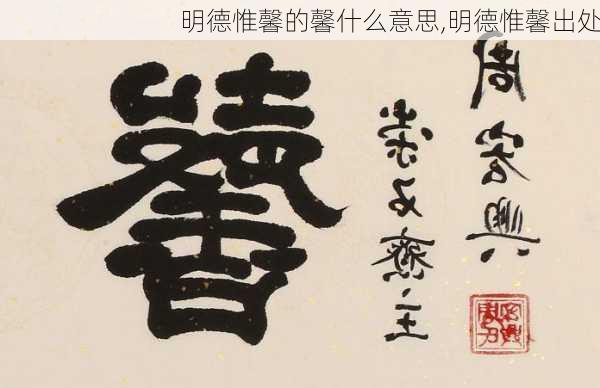 明德惟馨的馨什么意思,明德惟馨出处
馨
石齋主
周宏興